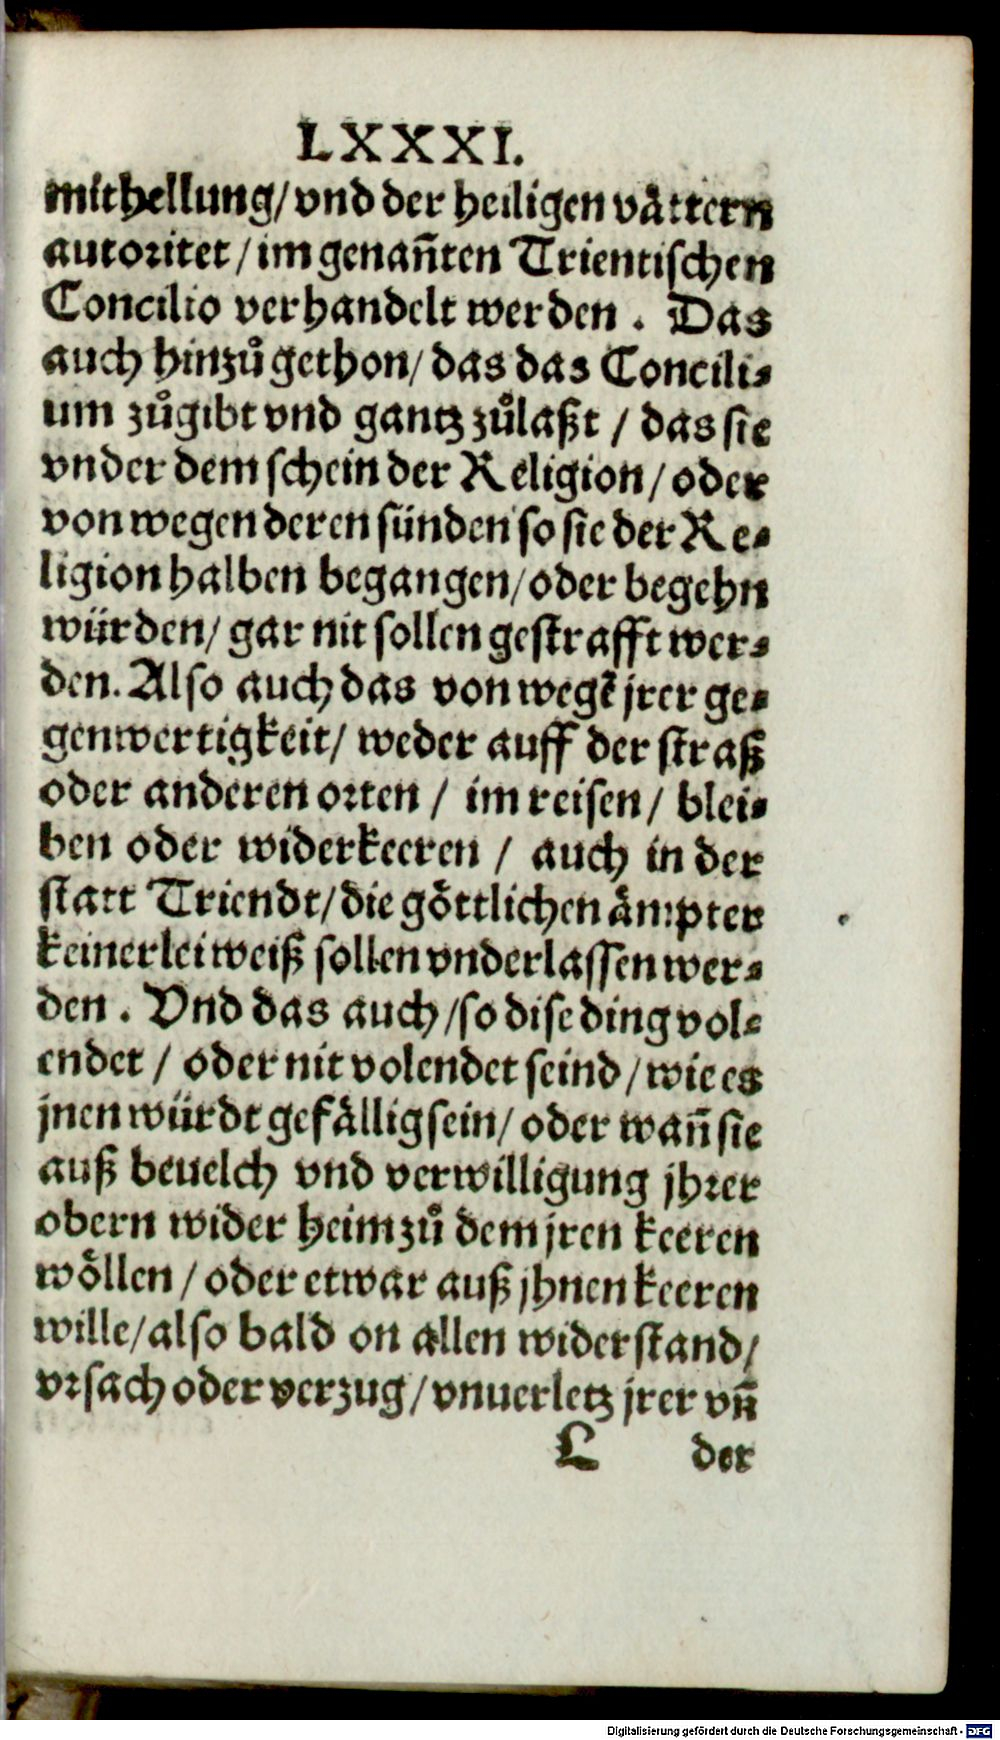 LXXXI.
mithellung/ vnd der heiligen vättern
autoritet/ im genañten Trientischen
Concilio verhandelt werden. Das
auch hinzů gethon/ das das Concili⸗
um zůgibt vnd gantz zůlaßt/ das sie
vnder dem schein der Religion/ oder
von wegen deren sünden so sie der Re⸗
ligion halben begangen/ oder begehn
würden/ gar nit sollen gestrafft wer⸗
den. Also auch das von wegẽ jrer ge⸗
genwertigkeit/ weder auff der straß
oder anderen orten/ im reisen/ blei⸗
ben oder widerkeeren/ auch in der
statt Triendt/ die göttlichen ämpter
keinerlei weiß sollen vnderlassen wer⸗
den. Vnd das auch/ so dise ding vol⸗
endet/ oder nit volendet seind/ wie es
jnen würdt gefällig sein/ oder wañ sie
auß beuelch vnd verwilligung jhrer
obern wider heim zů dem jren keeren
wöllen/ oder etwar auß jhnen keeren
wille/ also bald on allen widerstand/
vrsach oder verzug/ vnuerletz jrer vñ
L der
Digitalisierung gefördert durch die Deutsche Forschungsgemeinschaft - DFG